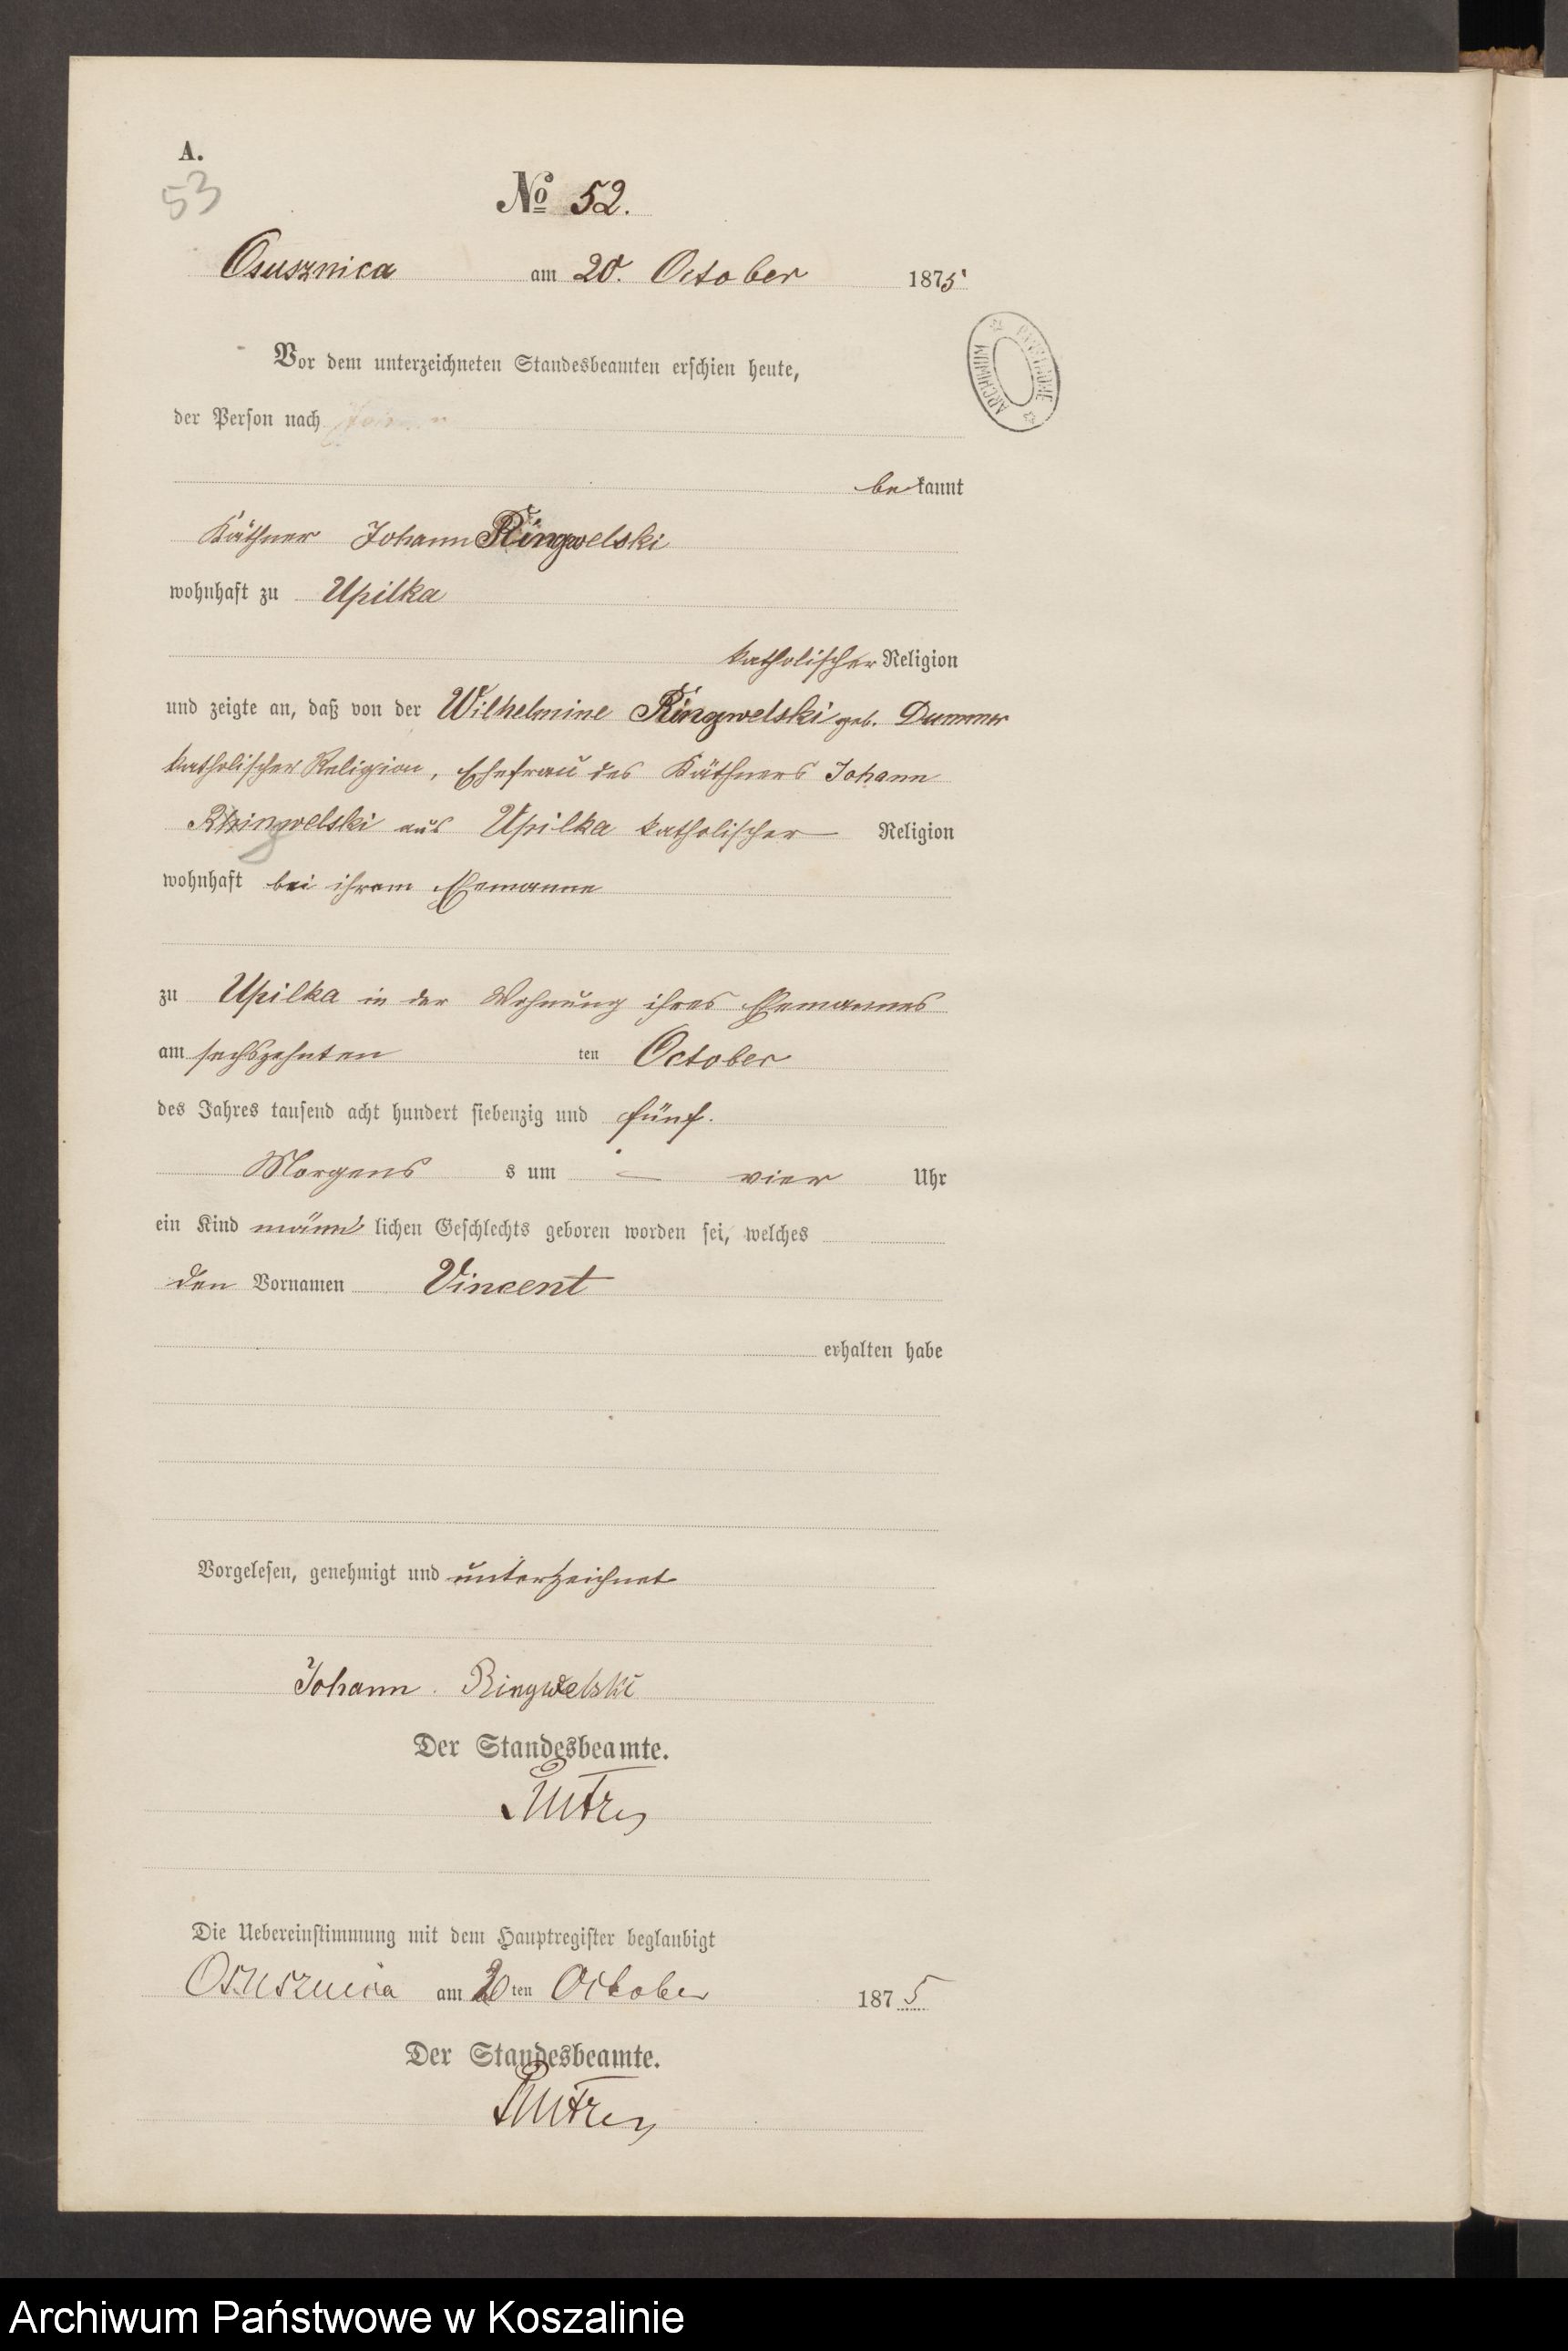 A.
53
№ 52.
Osusznica am 20. October 1875
Vor dem unterzeichneten Standesbeamten erschien heute,
der Person nach
bekannt
Käthner Johann Ringwelski
wohnhaft zu Upilka
katholischer Religion
und zeigte an, daß von der Wilhelmine Ringwelski geb. Dummer
katholischer Religion, Ehefrau des Käthners Johann
Rhingwelski aus Upilka katholischer Religion
wohnhaft bei ihrem Ehemanne
zu Upilka in der Wohnung ihres Ehemannes
am sechszehnten ten October
des Jahres tausend acht hundert siebenzig und fünf.
Morgens s um — vier Uhr
ein Kind männlichen Geschlechts geboren worden sei, welches
den Vornamen Vincent
erhalten habe
Vorgelesen, genehmigt und unterzeichnet
Johann Ringwelski
Der Standesbeamte.
Die Uebereinstimmung mit dem Hauptregister beglaubigt
Osusznica am 20ten October 1875
Der Standesbeamte.
ARCHIWUM PAŃSTWOWE
Archiwum Państwowe w Koszalinie